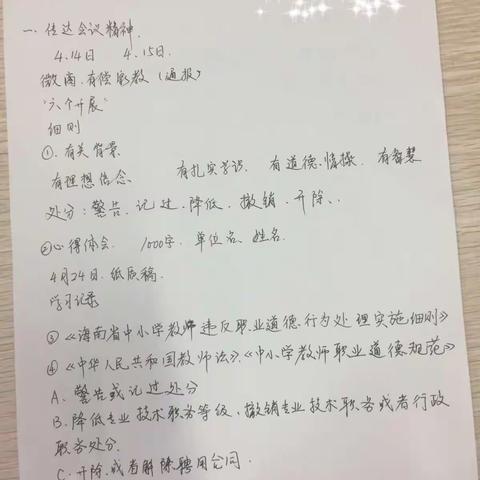 一、传达会议精神.
4.14日 4.15日.
微商.有偿家教（通报）
"六个开展"
细则
①.有关背景
有理想信念 有扎实学识. 有道德.情操. 有智慧
处分：警告.记过.降低.撤销.开除、.
②心得体会. 1000字. 单位名、姓名.
4月24日.纸质稿.
学习记录
③《海南省中小学教师违反职业道德行为处理实施细则》
④《中华人民共和国教师法》.《中小学教师职业道德规范》
A. 警告或记过处分
B. 降低专业技术职务等级、撤销专业技术职务或者行政
职务处分.
C. 开除.或者解除聘用合同.